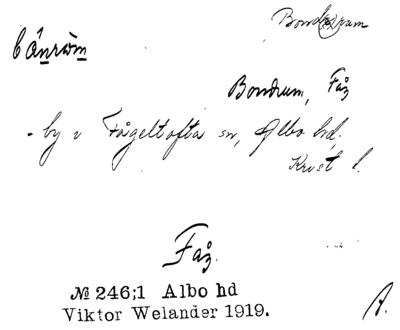 Bondrum, Fåg
by i Fågeltofta sn, Albo hd.
Krist l.
Fåg.
№ 246;1 Albo hd
Viktor Welander 1919.